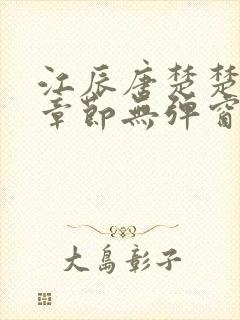 江辰唐楚楚
章節無彈窗
大島彰子